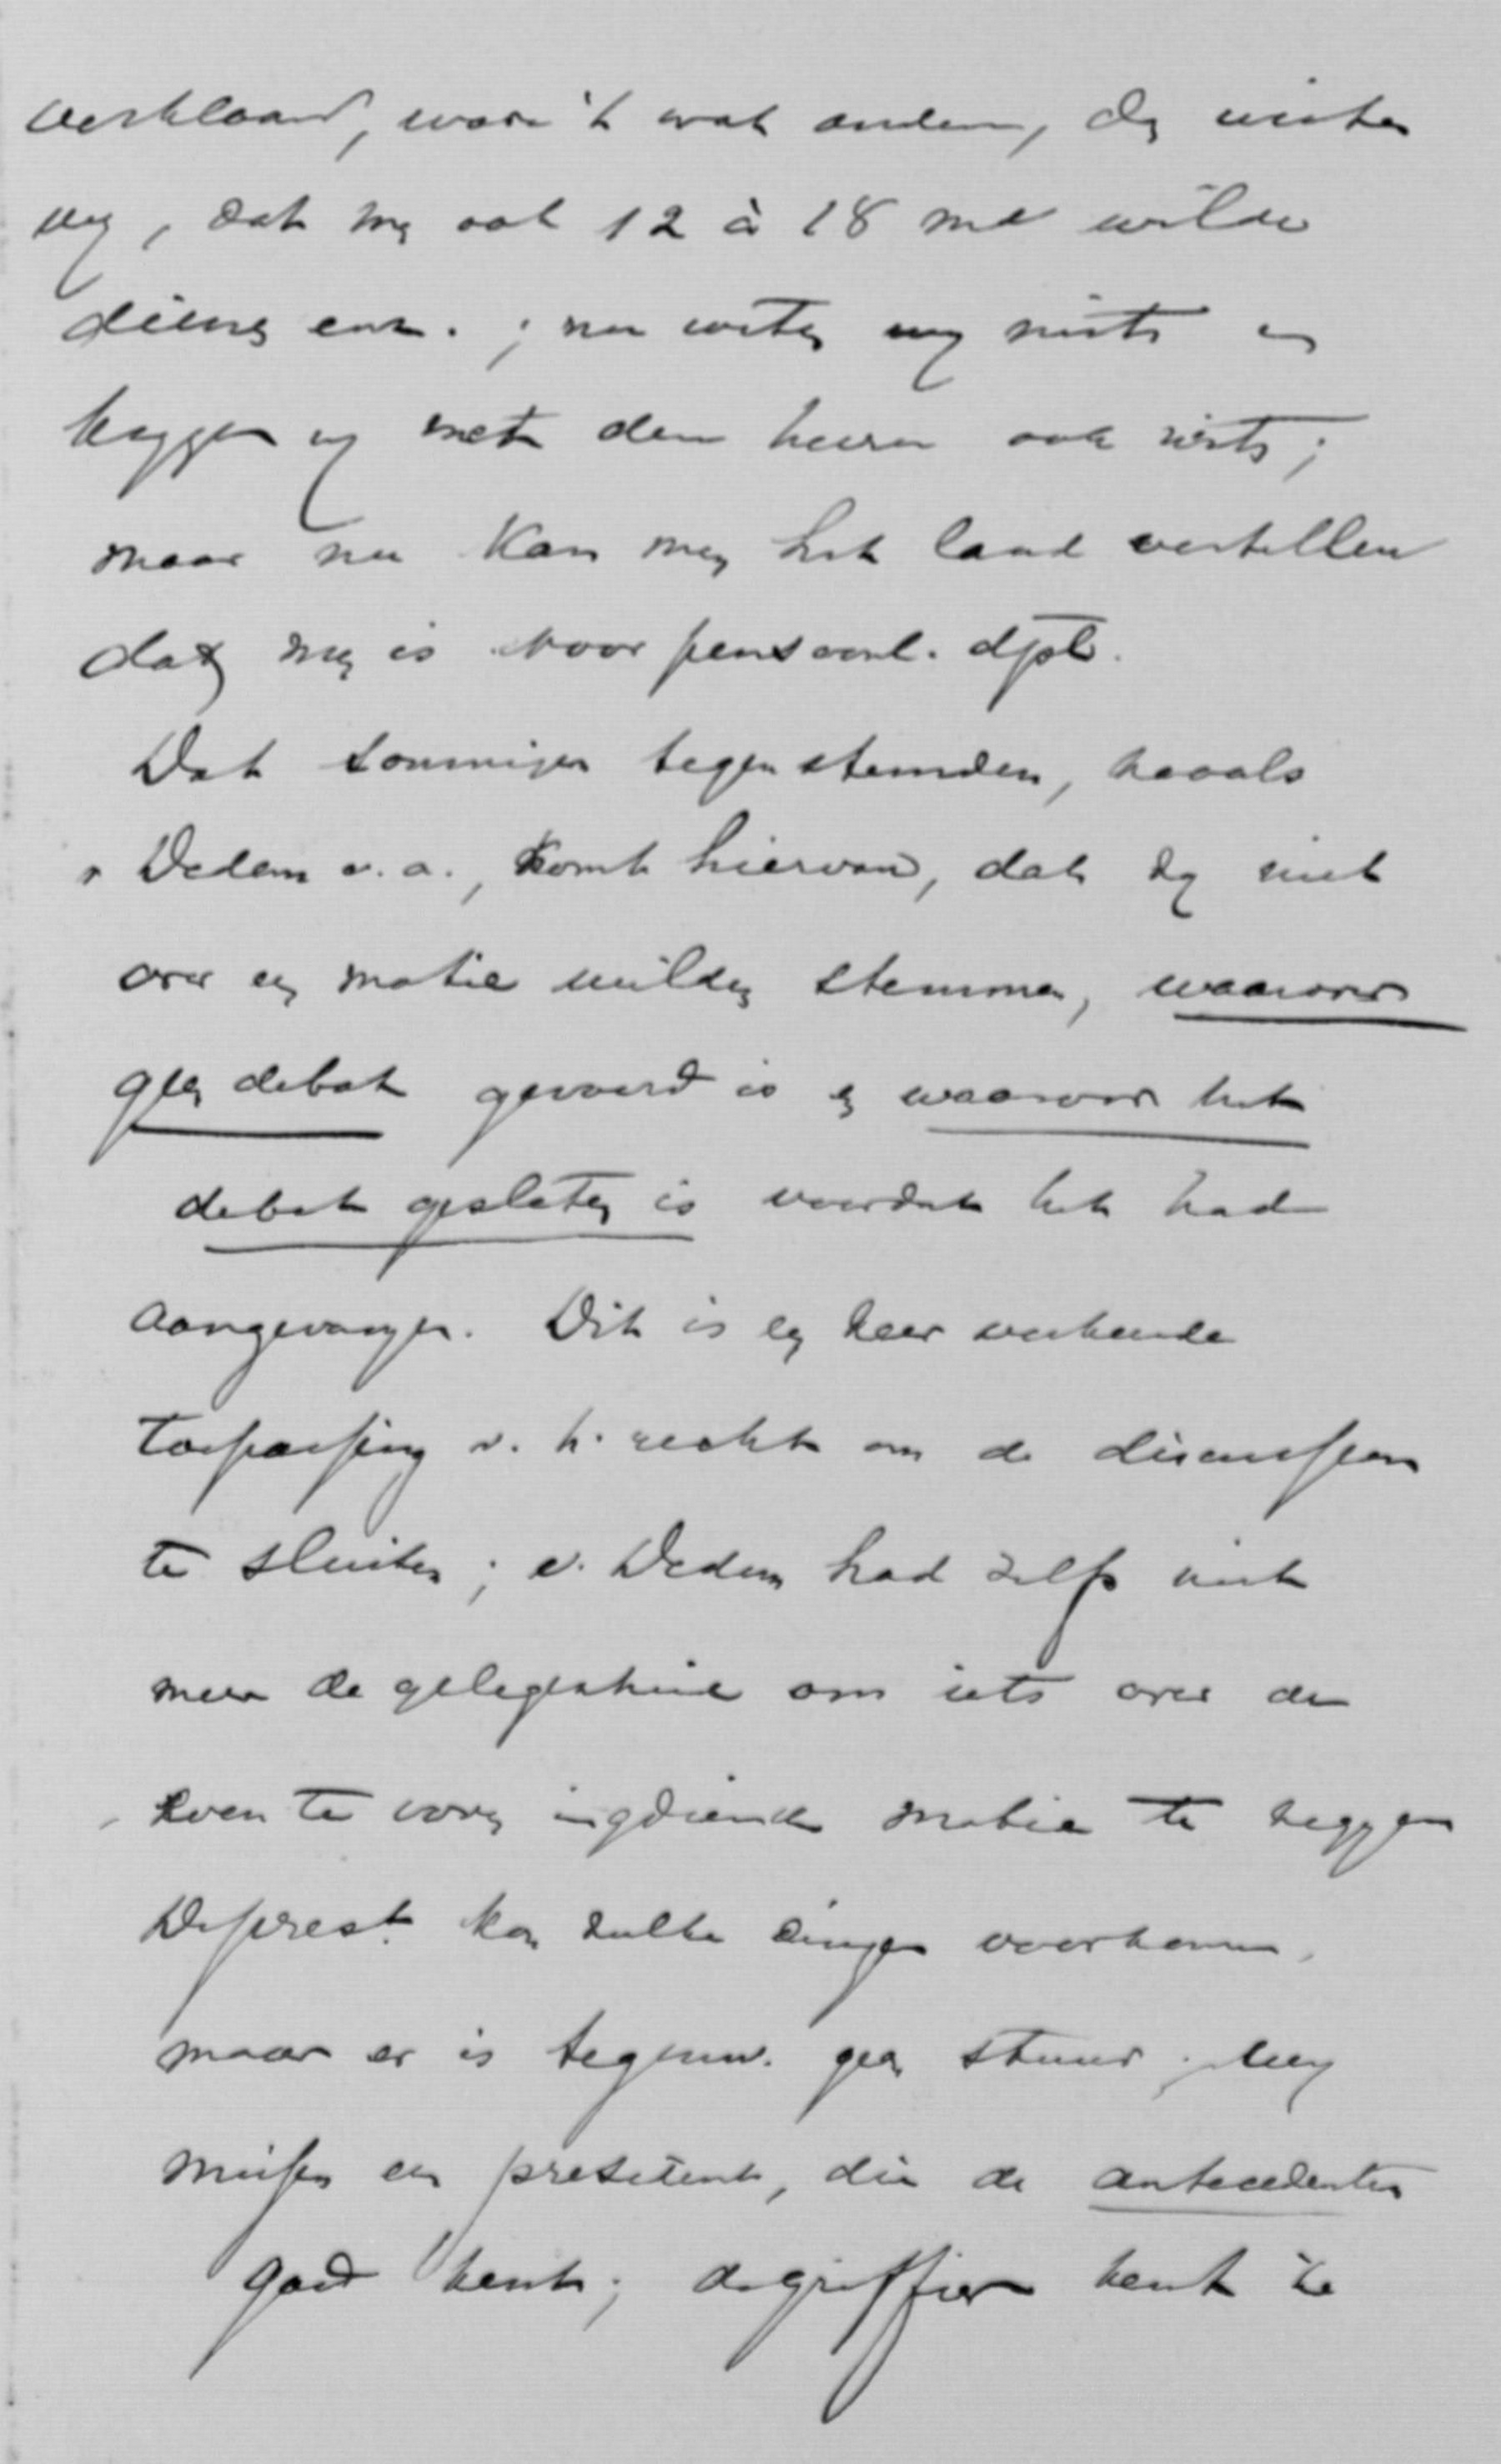 verklaard, ware 't wat anders, dan wisten
wij, dat men ook 12 à 18 md wilde
dienen enz. ; nu weten wij niets en
zeggen wij met den heeren ook niets ;
maar nu kan men het land vertellen
dat men is voor persoonl. dpl.
Dat sommigen tegenstemden, zooals
v Dedem e. a., komt hiervan, dat zij niet
over een motie wilden stemmen, waarover
geen debat gevoerd is en waarover het
debat gesloten is voordat het had
aangevangen. Dit is een zeer verkeerde
toepassing v. h. recht om de discussien
te sluiten ; v. Dedem had zelfs niet
meer de gelegenheid om iets over de
even te voren ingediende motie te zeggen
De prest. kon zulke dingen voorkomen,
maar er is tegenw. geen stuur ; wij
missen een president, die de antecedenten
goed kent ; de griffier kent ze